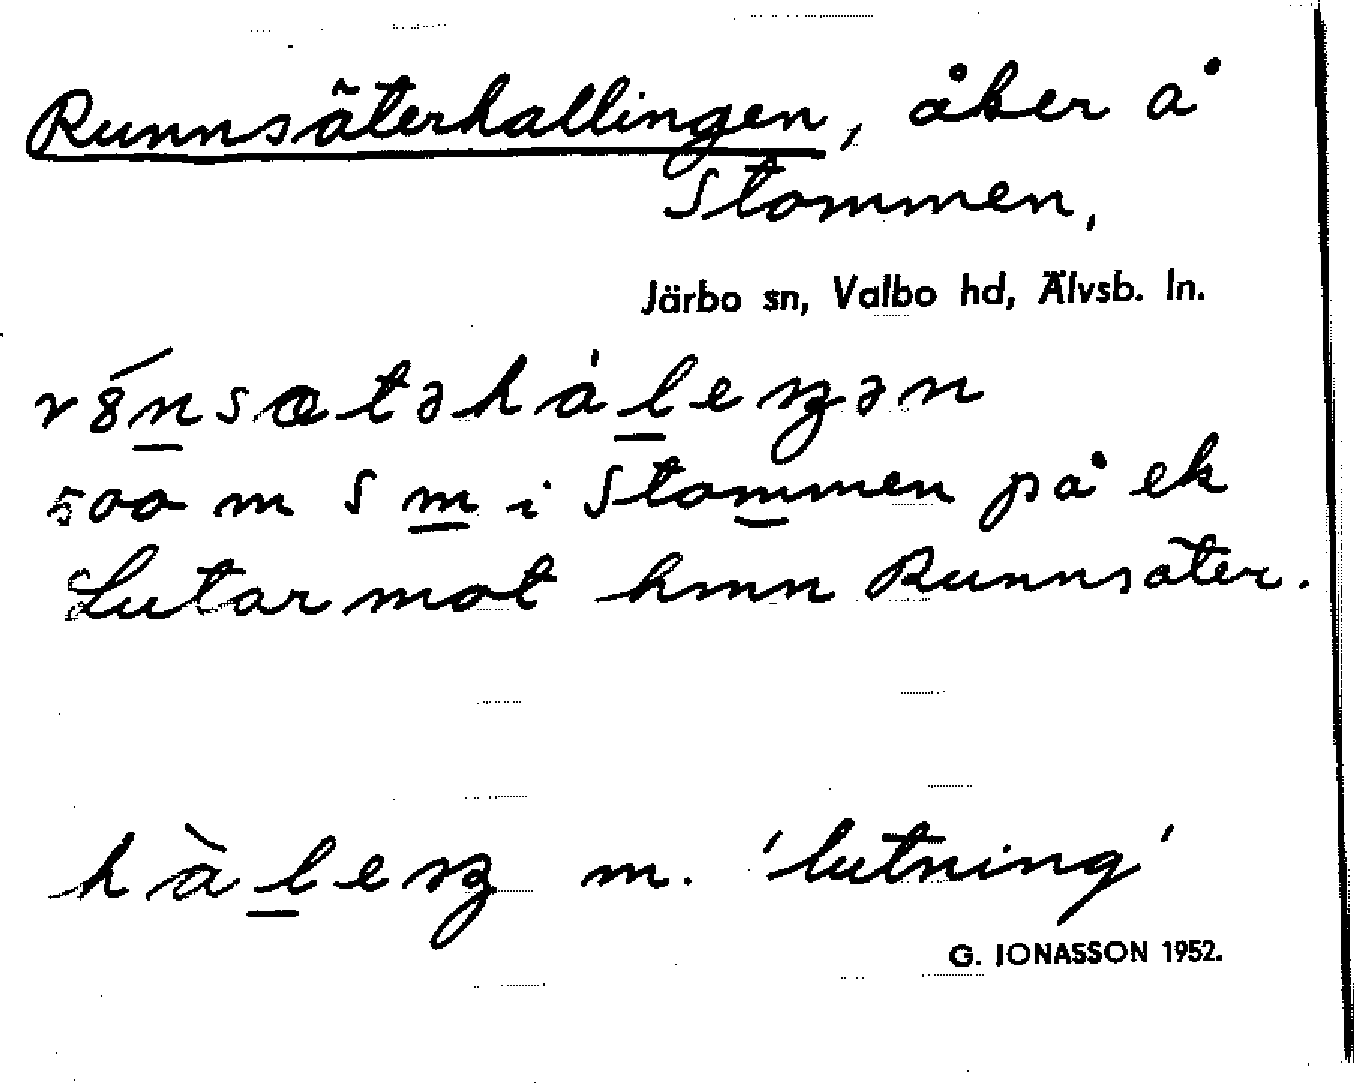 Runnsäterhallingen, åker å
Stommen,
Järbo sn, Valbo hd, Älvsb. ln.
500 m S m i Stommen på ek
Lutar mot hmn Runnsäter.
hàl̲eŋ m. 'lutning'
G. JONASSON 1952.